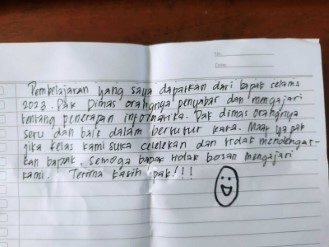 No.
Date
Pembelajaran yang saya dapatkan dari bapak selama
2023. Pak Dimas orangnya penyabar dan mengajari
tentang penerapan informatika. Pak dimas orangnya
seru dan baik dalam bertutur kata. Maaf ya pak
jika kelas kami suka celelekan dan tidak mendengat-
kan bapak. Semoga bapak tidak bosan mengajari
kami. Terima kasih pak!!!